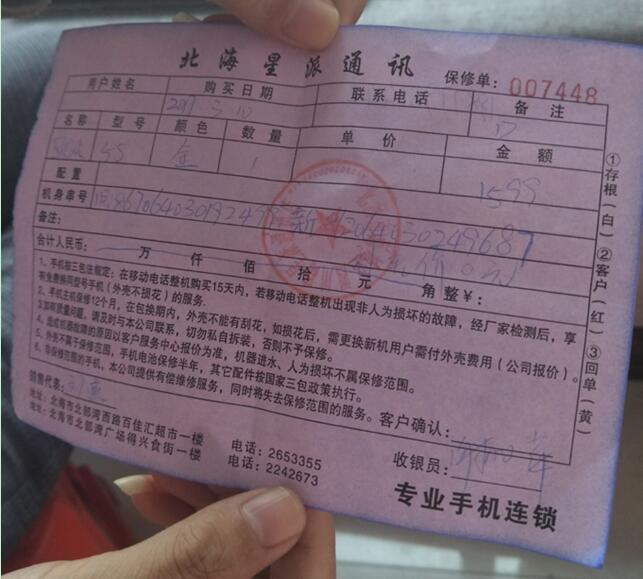 北海星派通讯
保修单：007448
用户姓名 购买日期 联系电话 备注
名称 型号 颜色 数量 单价 金额
4S 金 1 1599
配置
机身串号
备注：
合计人民币： 万 仟 佰 拾 元 角 整￥：
1、手机按三包法规定：在移动电话整机购买15天内，若移动电话整机出现非人为损的故障，经厂家检测后，享
有免费换同型号手机（外壳不损花）的服务.
2、手机主机保修12个月，在包换期内，外壳不能有刮花，如损花后，需更换新机用户需付外壳费用（公司报价）。
3、如有质量问题，请及时与本公司联系，切勿私自拆装，否则不予保修。
4、造成机器故障的原因以客户服务中心报价为准，机器进水、人为损坏不属保修范围。
5、外壳不属于保修范围，手机电池保修半年，其它配件按国家三包政策执行。
6、非保修范围的手机，本公司提供有偿维修服务，同时将失去保修范围的服务。
客户确认：
销售代表：
收银员：
地址：北海市北部湾西路百佳汇超市一楼 电话：2653355
地址：北海市北部湾广场得兴食街一楼 电话：2242673
专业手机连锁
①存根（白）②客户（红）③回单（黄）